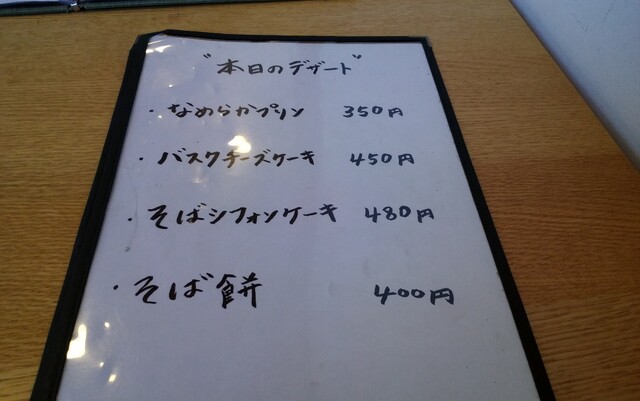 "本日のデザート"
・なめらかプリン 350円
・バスクチーズケーキ 450円
・そばシフォンケーキ 480円
・そば餅 400円